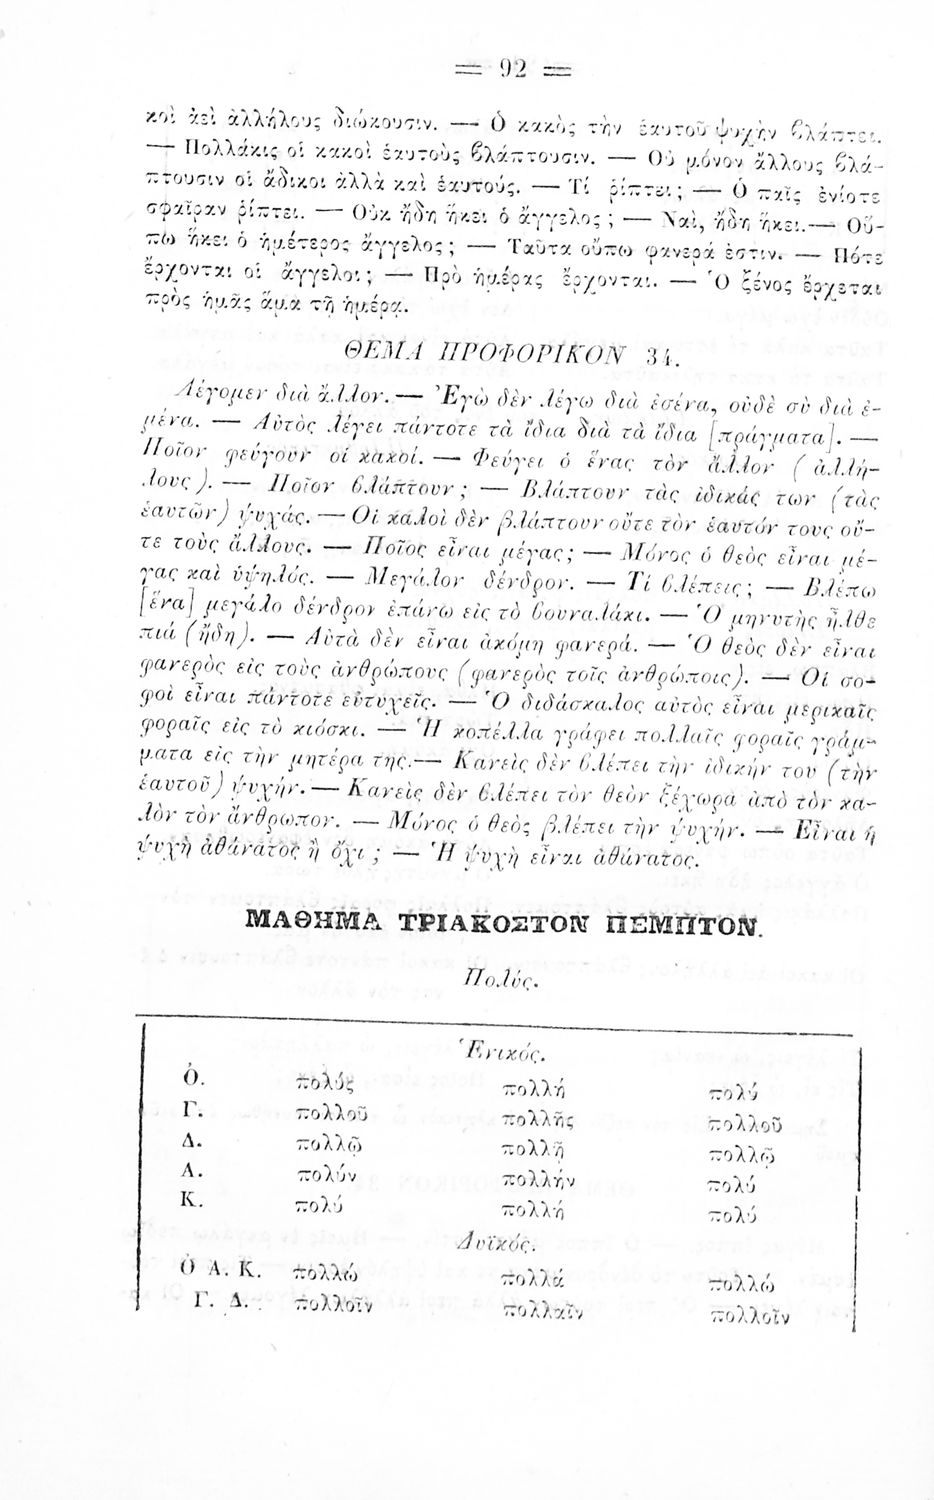 = 92 =
κοὶ ἀεὶ ἀλλήλους διώκουσιν. — Ὁ κακὸς τὴν ἑαυτοῦ ψυχὴν βλάπτει.
— Πολλάκις οἱ κακοὶ ἑαυτοὺς βλάπτουσιν. — Οὐ μόνον ἄλλους βλά-
πτουσιν οἱ ἄδικοι ἀλλὰ καὶ ἑαυτούς. — Τί ῥίπτει; — Ὁ παῖς ἐνίοτε
σφαῖραν ῥίπτει. — Οὐκ ἤδη ἥκει ὁ ἄγγελος; — Ναὶ, ἤδη ἥκει. — Οὔ-
πω ἥκει ὁ ἡμέτερος ἄγγελος; — Ταῦτα οὔπω φανερά ἐστιν. — Πότε
ἔρχονται οἱ ἄγγελοι; — Πρὸ ἡμέρας ἔρχονται. — Ὁ ξένος ἔρχεται
πρὸς ἡμᾶς ἅμα τῇ ἡμέρᾳ.
ΘΕΜΑ ΠΡΟΦΟΡΙΚΟΝ 34.
Λέγομεν διὰ ἄλλον. — Ἐγὼ δὲν λέγω διὰ ἐσένα, οὐδὲ σὺ διὰ ἐ-
μένα. — Αὐτὸς λέγει πάντοτε τὰ ἴδια διὰ τὰ ἴδια [πράγματα]. —
Ποῖον φεύγουν οἱ κακοί. — Φεύγει ὁ ἕνας τὸν ἄλλον (ἀλλή-
λους). — Ποῖον βλάπτουν; — Βλάπτουν τὰς ἰδικάς των (τὰς
ἑαυτῶν) ψυχάς. — Οἱ καλοὶ δὲν βλάπτουν οὔτε τὸν ἑαυτόν τους οὔ-
τε τοὺς ἄλλους. — Ποῖος εἶναι μέγας; — Μόνος ὁ θεὸς εἶναι μέ-
γας καὶ ὑψηλός. — Μεγάλον δένδρον. — Τί βλέπεις; — Βλέπω
[ἕνα] μεγάλο δένδρον ἐπάνω εἰς τὸ βουναλάκι. — Ὁ μηνυτὴς ἦλθε
πιά (ἤδη). — Αὐτὰ δὲν εἶναι ἀκόμη φανερά. — Ὁ θεὸς δὲν εἶναι
φανερὸς εἰς τοὺς ἀνθρώπους (φανερὸς τοῖς ἀνθρώποις). — Οἱ σο-
φοὶ εἶναι πάντοτε εὐτυχεῖς. — Ὁ διδάσκαλος αὐτὸς εἶναι μερικαῖς
φοραῖς εἰς τὸ κιόσκι. — Ἡ κοπέλλα γράφει πολλαῖς φοραῖς γράμ-
ματα εἰς τὴν μητέρα της. — Κανεὶς δὲν βλέπει τὴν ἰδικήν του (τὴν
ἑαυτοῦ) ψυχήν. — Κανεὶς δὲν βλέπει τὸν θεὸν ξέχωρα ἀπὸ τὸν κα-
λὸν τὸν ἄνθρωπον. — Μόνος ὁ θεὸς βλέπει τὴν ψυχήν. — Εἶναι ἡ
ψυχὴ ἀθάνατος ἢ ὄχι; — Ἡ ψυχὴ εἶναι ἀθάνατος.
ΜΑΘΗΜΑ ΤΡΙΑΚΟΣΤΟΝ ΠΕΜΠΤΟΝ.
Πολύς.
Ἑνικός.
Ὀ. πολύς πολλή πολύ
Γ. πολλοῦ πολλῆς πολλοῦ
Δ. πολλῷ πολλῇ πολλῷ
Α. πολύν πολλήν πολύ
Κ. πολύ πολλή πολύ
Δυϊκός.
Ὀ Α. Κ. πολλώ πολλά πολλώ
Γ. Δ. πολλοῖν πολλαῖν πολλοῖν